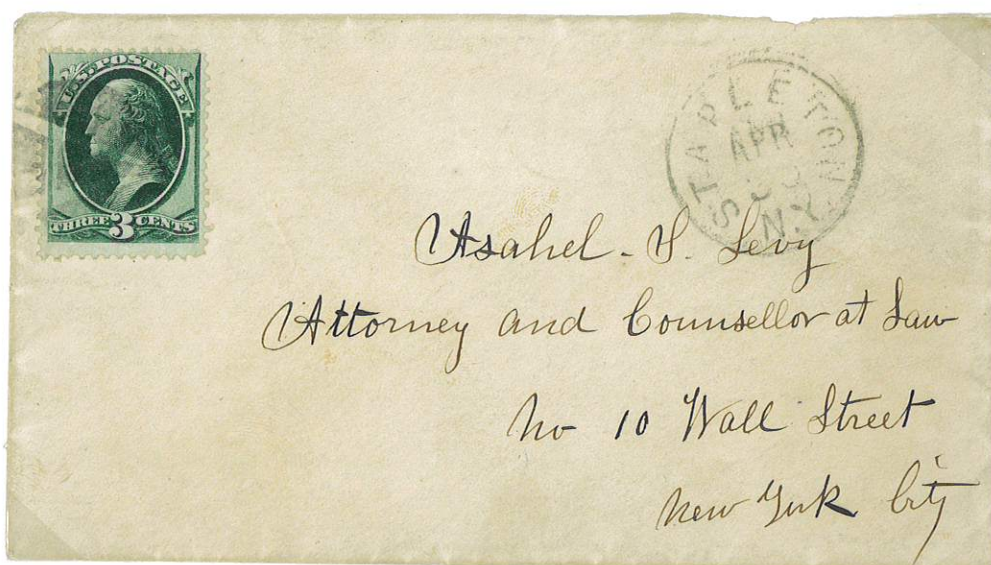 U.S. POSTAGE
THREE 3 CENTS
STAPLETON
APR
N.Y.
Asahel. S. Levy
Attorney and Counsellor at Law
No 10 Wall Street
New York City